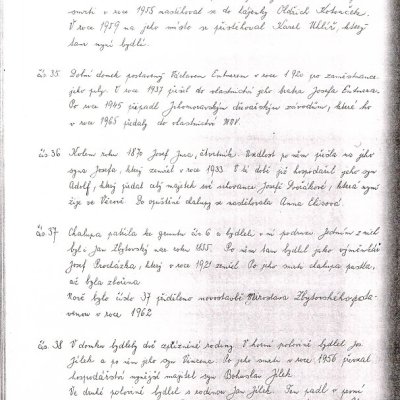 smrti v roce 1955 nastěhoval se do hájenky Oldřich Koteněček.
V roce 1959 na jeho místo se přistěhoval Karel Uhlíř, který
tam nyní bydlí.
čís. 35 Dolní domek postavený Václavem Entnerem v roce 1920 pro zaměstnance
jeho pily. V roce 1937 přešel do vlastnictví jeho bratra Josefa Entnera.
Po roce 1945 připadl Jihomoravským dřevařským závodům, které ho
v roce 1965 předaly do vlastnictví MNV.
čís. 36 Kolem roku 1870 Josef Jura, čtvrtník. Usedlost po něm přešla na jeho
syna Josefa, který zemřel v roce 1933. V té době již hospodařil jeho syn
Adolf, který předal celý majetek své schovance Josefě, která nyní
žije ve. Do opuštěné chalupy se nastěhovala Anna
čís. 37 Chalupa patřila ke gruntu čís 6 a bydleli v ní podruzi. Jedním z nich
byl i Jan Zbytovský asi roku 1855. Po něm tam bydlel jako výměnkář
Josef Procházka, který v roce 1921 zemřel. Po jeho smrti chalupa pustla,
až byla zbořena.
Nové bylo číslo 37 přiděleno novostavbě Miroslava Zbytovského posta-
venou v roce 1962
čís. 38 V domku bydlely dvě rodiny. V horní polovině bydlel Jos.
Jílek a po něm jeho syn Vincenc. Po jeho smrti v roce 1956 převzal
hospodářství nynější majitel syn Bohuslav Jílek.
Ve druhé polovině bydlel s rodinou Jan Jílek. Ten padl v první